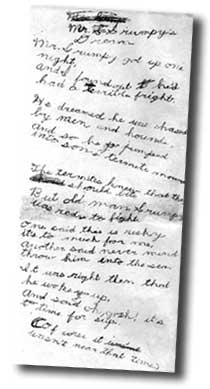 Mr. Scrumpy's
Dream
Mr. Scrumpy got up one
night,
and found out he'd
had a terrible fright.
He dreamed he was chased
by men and hounds,
And so he jumped
into some termite mound
The termites knew that they
should bite
But old man Scrumpy
was ready to fight.
One said this is risky
its to much for me,
Another said never mind
throw him into the sea.
It was right then that
he woke up,
And said oh, gosh! it's
time for sup.
(Of corse it
wasn't near that time)